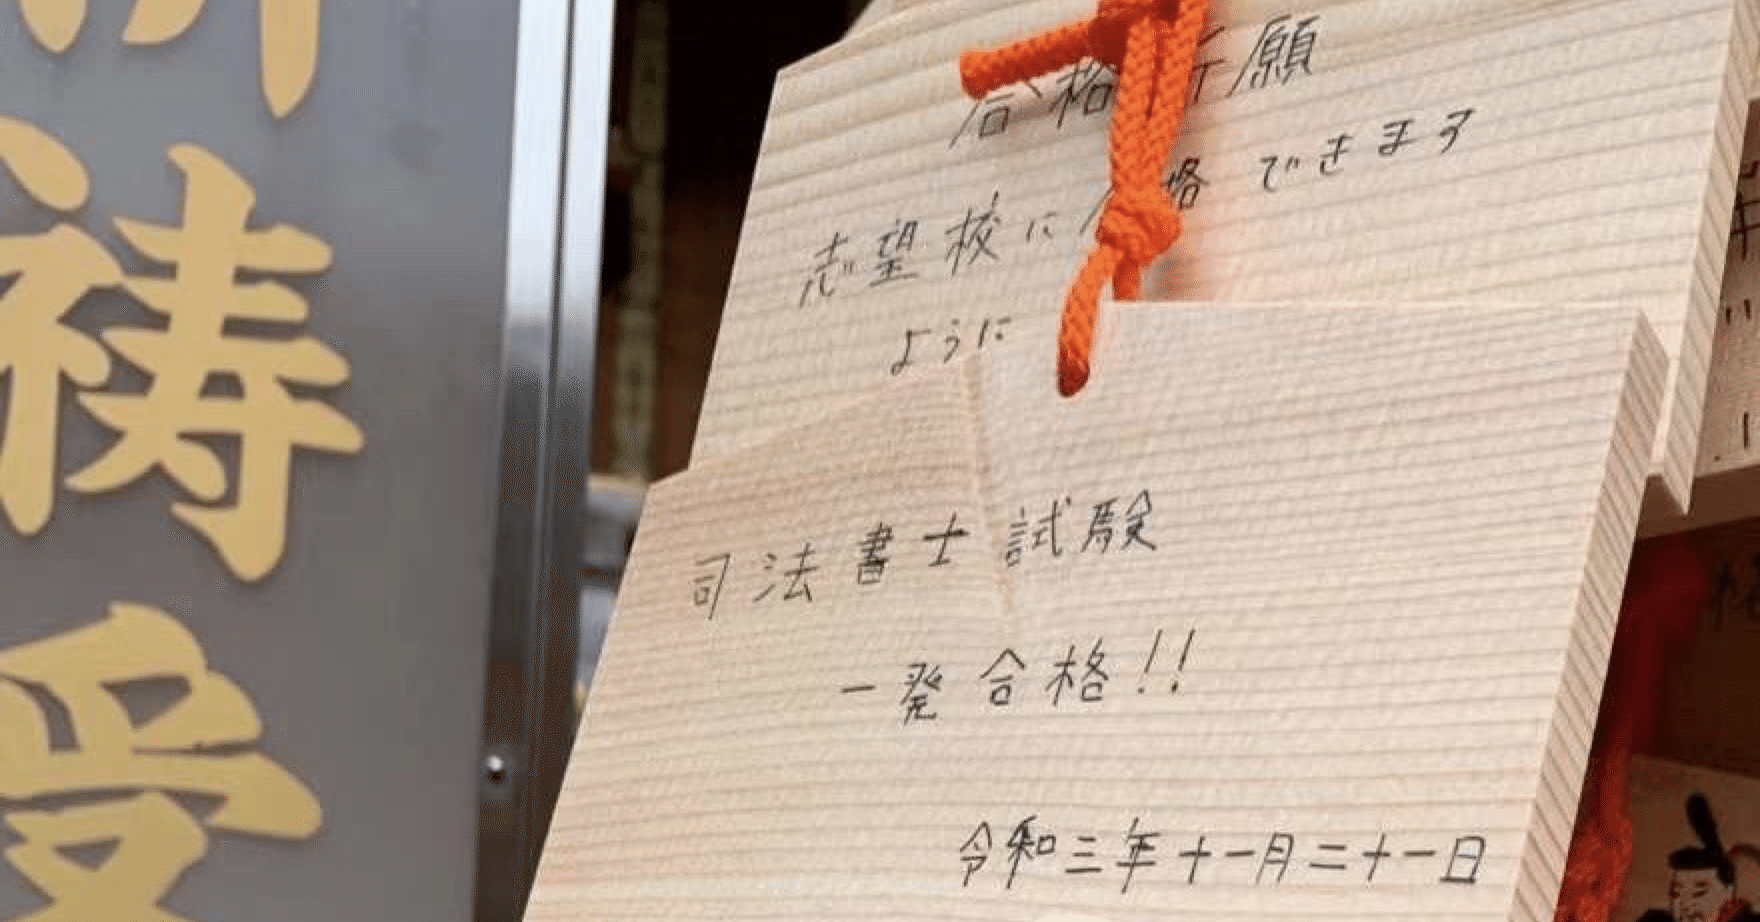 祷
受
合格祈願
志望校に合格できます
ように
司法書士試験
一発合格!!
令和三年十一月二十一日